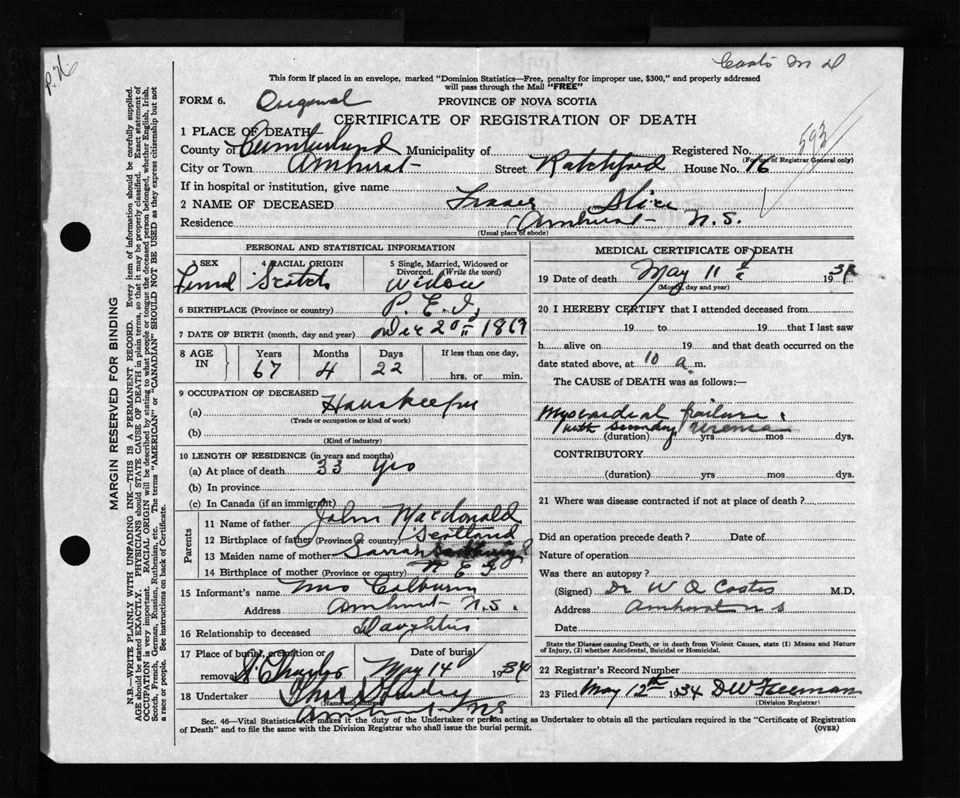 P.X
Coats M D
This form if placed in an envelope, marked "Dominion Statistics—Free, penalty for improper use, $300," and properly addressed
will pass through the Mail "FREE"
FORM 6. Original PROVINCE OF NOVA SCOTIA
CERTIFICATE OF REGISTRATION OF DEATH
593
1 PLACE OF DEATH
County of Cumberland Municipality of Registered No.
(For use of Registrar General only)
City or Town Amherst Street Ratchford House No. 16
If in hospital or institution, give name
2 NAME OF DECEASED Fraser Alice
Residence Amherst N.S.
(Usual place of abode)
PERSONAL AND STATISTICAL INFORMATION
3 SEX 4 RACIAL ORIGIN 5 Single, Married, Widowed or Divorced. (Write the word)
Femal Scotch Widow
6 BIRTHPLACE (Province or country) P. E. I,
7 DATE OF BIRTH (month, day and year) Dec 20 1867
8 AGE IN Years Months Days If less than one day,
67 4 22 hrs. or min.
9 OCCUPATION OF DECEASED
(a) Hauskeeper
(Trade or occupation or kind of work)
(b)
(Kind of industry)
10 LENGTH OF RESIDENCE (in years and months)
(a) At place of death 33 yrs
(b) In province
(c) In Canada (if an immigrant)
Parents
11 Name of father John Macdonald
12 Birthplace of father (Province or country) Scotland
13 Maiden name of mother Sarrah
14 Birthplace of mother (Province or country)
15 Informant's name Mrs Colburn
Address Amherst N.S.
16 Relationship to deceased Daughter
17 Place of burial, cremation or removal Date of burial
St Charles May 14 1934
18 Undertaker Thos
(Name and address)
Amherst NS
MEDICAL CERTIFICATE OF DEATH
19 Date of death May 11 193
(Month, day and year)
20 I HEREBY CERTIFY that I attended deceased from
19 to 19, that I last saw
h alive on 19 and that death occurred on the
date stated above, at 10 a. m.
The CAUSE OF DEATH was as follows:—
Myocardial failure
with secondary uremia
(duration) yrs mos dys.
CONTRIBUTORY
(duration) yrs mos dys.
21 Where was disease contracted if not at place of death?
Did an operation precede death? Date of
Nature of operation
Was there an autopsy?
(Signed) Dr W Q Coates M.D.
Address Amherst n s
Date
State the Disease causing Death, or in death from Violent Causes, state (1) Means and Nature
of Injury, (2) whether Accidental, Suicidal or Homicidal.
22 Registrar's Record Number
23 Filed May 12th 1934 DW Freeman
(Division Registrar)
Sec. 46—Vital Statistics Act makes it the duty of the Undertaker or person acting as Undertaker to obtain all the particulars required in the "Certificate of Registration
of Death" and to file the same with the Division Registrar who shall issue the burial permit.
(OVER)
MARGIN RESERVED FOR BINDING
N.B.—WRITE PLAINLY WITH UNFADING INK—THIS IS A PERMANENT RECORD. Every item of information should be carefully supplied.
AGE should be stated EXACTLY. PHYSICIANS should STATE CAUSE OF DEATH in plain terms, so that it may be properly classified. Exact statement of
OCCUPATION is very important. RACIAL ORIGIN will be described by stating to what people or tongue the deceased person belonged, whether English, Irish,
Scotch, French, German, Russian, Ruthenian, etc. The terms "AMERICAN" or "CANADIAN" SHOULD NOT BE USED as they express citizenship but not
a race or people. See instructions on back of Certificate.